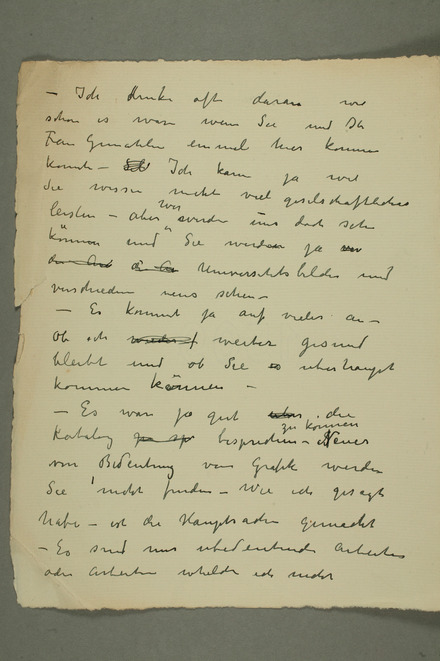 – Ich denke oft daran wie
schön es wäre wenn Sie und Ihr
Frau Gemahlin einmal hier kommen
könnte – Ich kann ja wie
Sie wissen nicht viel geselschaftliches
leisten – aber wir würden uns doch sehen
können und Sie würden ja
Universitetsbilder und
verschieden neues sehen –
– Es kommt ja auf vieles an –
ob ich weiter gesund
bleibt und ob Sie überhaupt
kommen können –
– Es war ja gut die
Katalog besprechen zu können – Neues
von Bedeutung von Grafik werden
Sie nicht finden – Wie ich gesagt
habe – ist die Hauptsachen gemacht
– Es sind nur unbedeutende Arbeiten
oder Arbeiten welche ich nicht